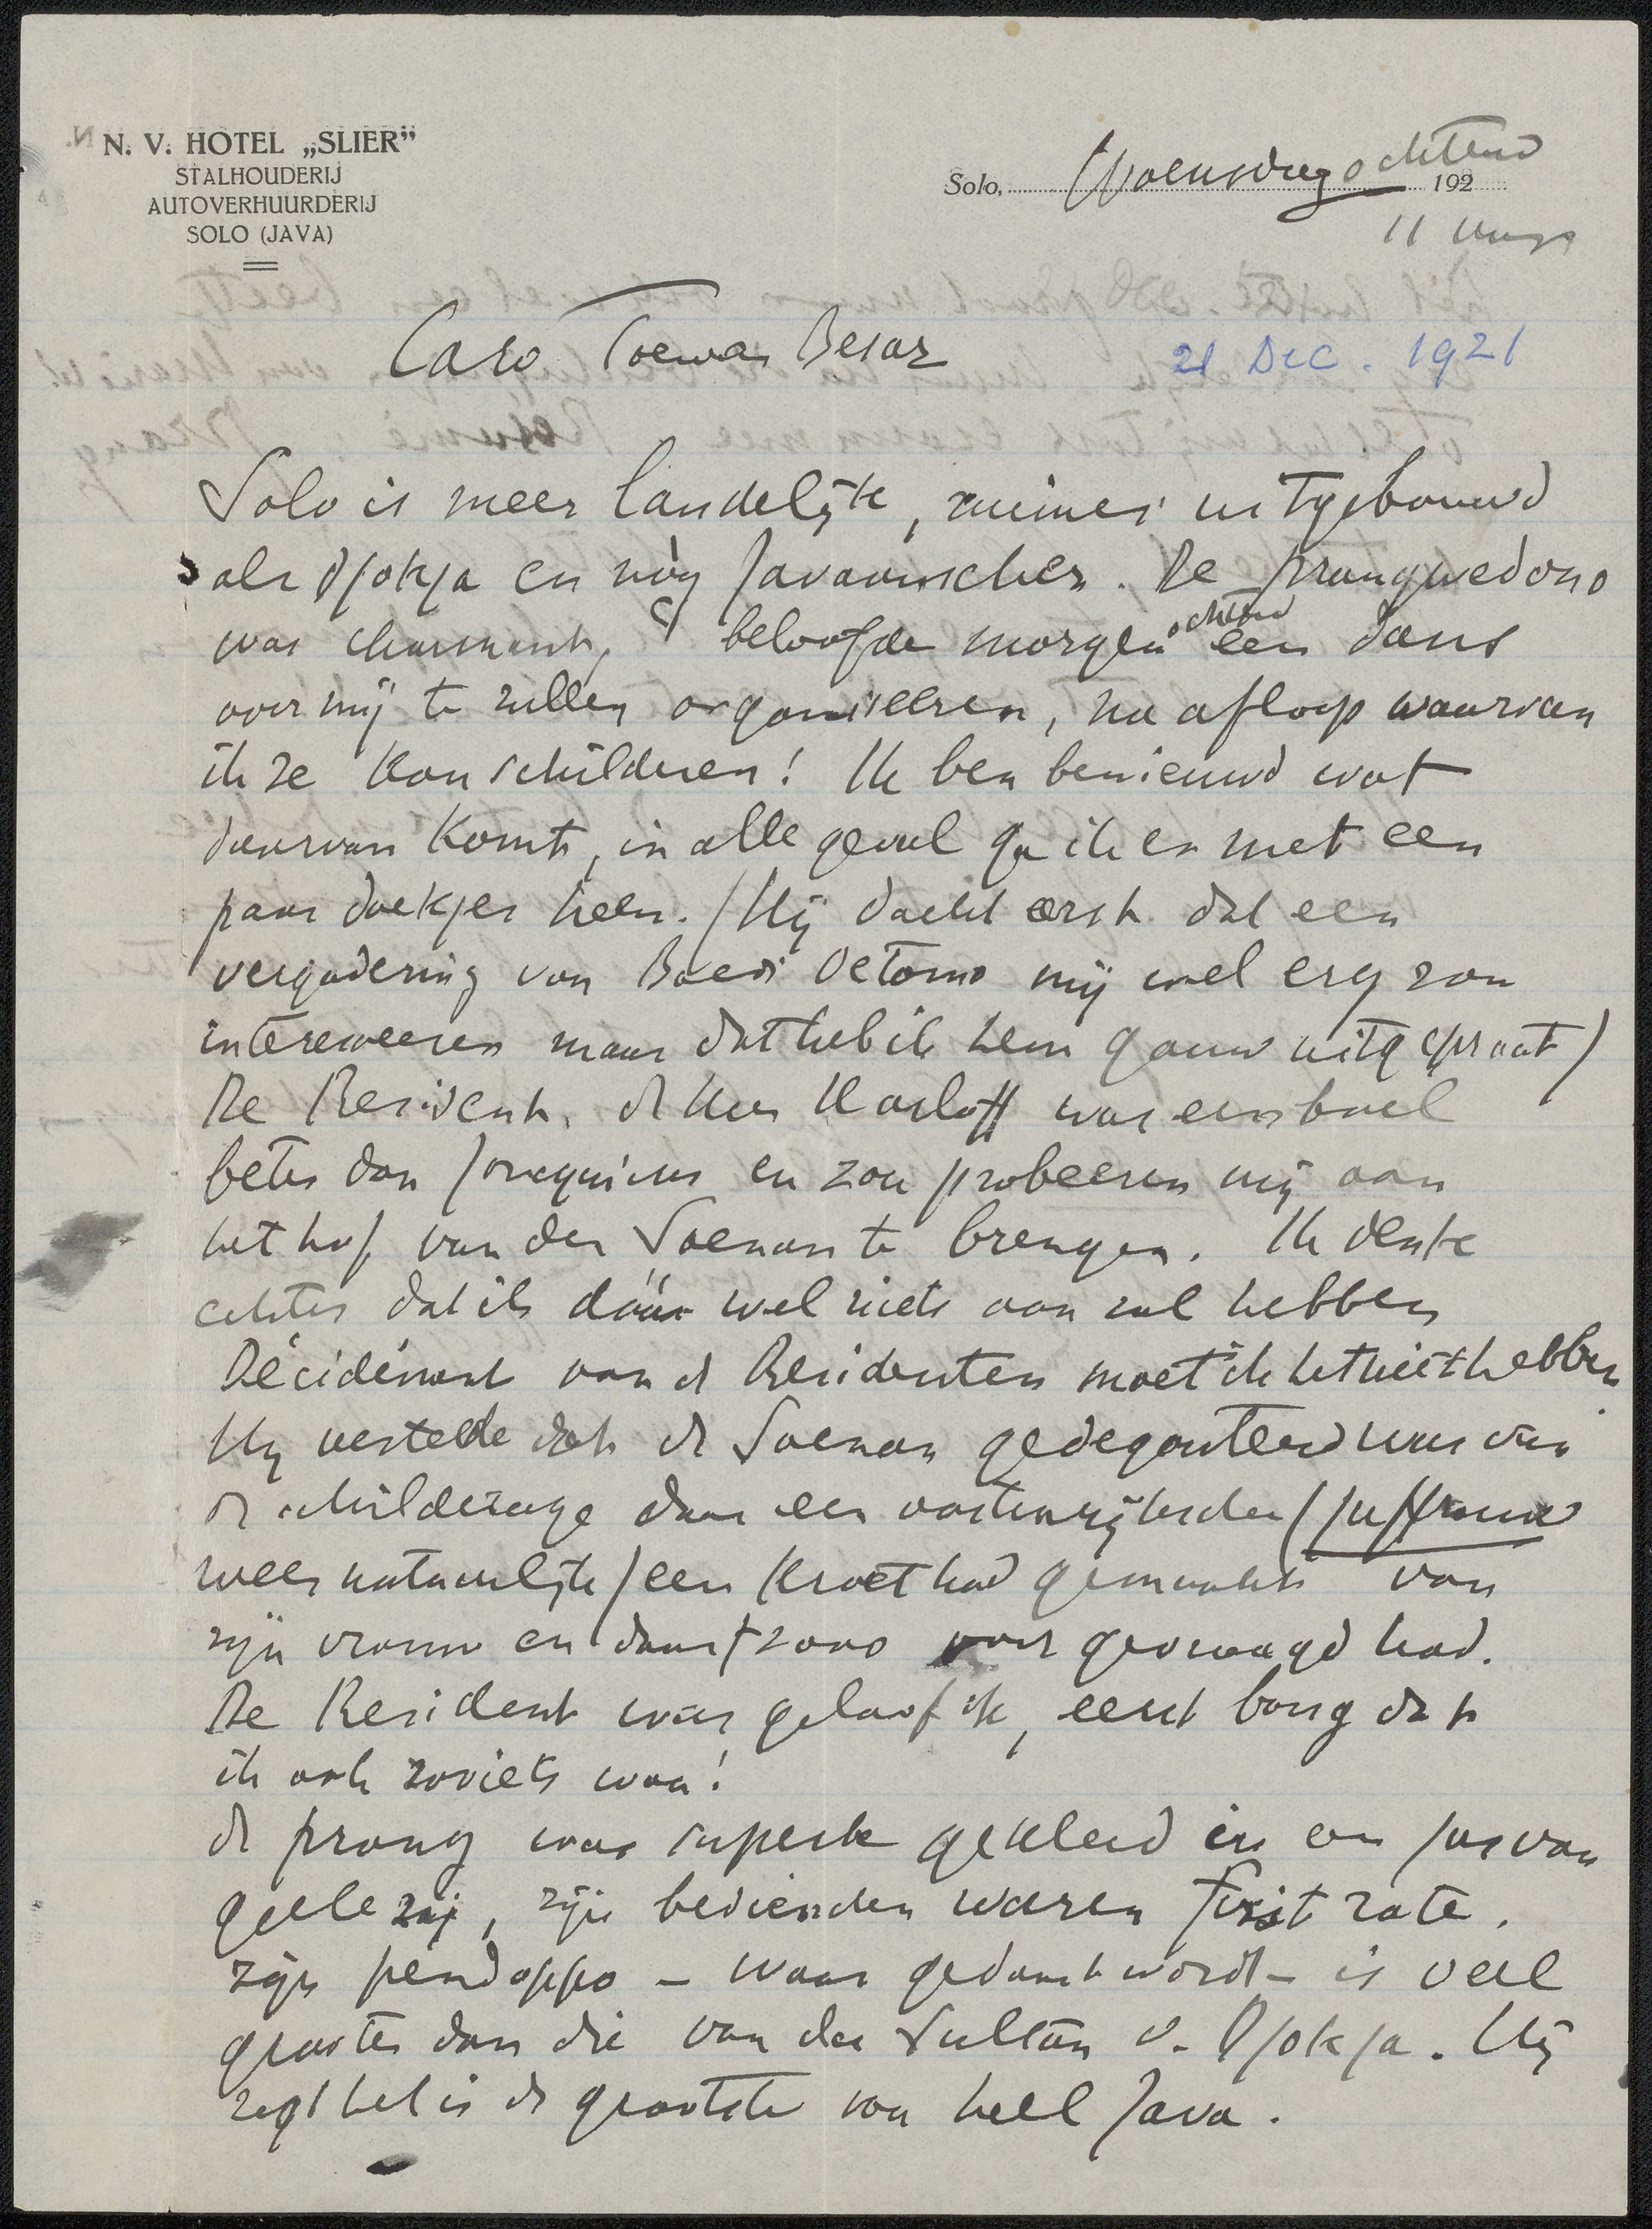 N. V. HOTEL „SLIER”
STALHOUDERIJ
AUTOVERHUURDERIJ
SOLO (JAVA)
Solo, Woensdag ochtend 192
11 uur
Caro Toewan Besar
21 Dec. 1921
Solo is meer landelijk, ruimer uitgebouwd
als Djokja en nòg Javaanscher. De prangwedono
was charmant, beloofde morgen ochtend een dans
voor mij te zullen organiseeren, na afloop waarvan
ik ze kon schilderen! Ik ben benieuwd wat
daarvan komt, in alle geval ga ik er met een
paar doekjes heen. (Hij dacht eerst dat een
vergadering van Boedi Oetomo mij wel erg zou
interesseeren maar dat heb ik hem gauw uitgepraat)
De Resident, de Heer Harloff was een boel
beter dan Jonequiere en zou probeeren mij aan
het hof van den Soenan te brengen. Ik denk
echter dat ik dáár wel niets aan zal hebben
Décidément van de Residenten moet ik het niet hebben
Hij vertelde dat de Soenan gedegouteerd was van
de schilderage daar een oostenrijksche (juffrouw
weer natuurlijk) een kroet had gemaakt van
zijn vrouw en daar f 2000 voor gevraagd had.
De Resident was geloof ik, eerst bang dat
ik ook zoiets wou!
de prang was superbe gekleed in een jas van
gele zij, zijn bedienden waren first rate.
zijn pendoppo – waar gedanst wordt – is veel
grooter dan die van den Sultan v. Djokja. Hij
zegt het is de grootste van heel Java.